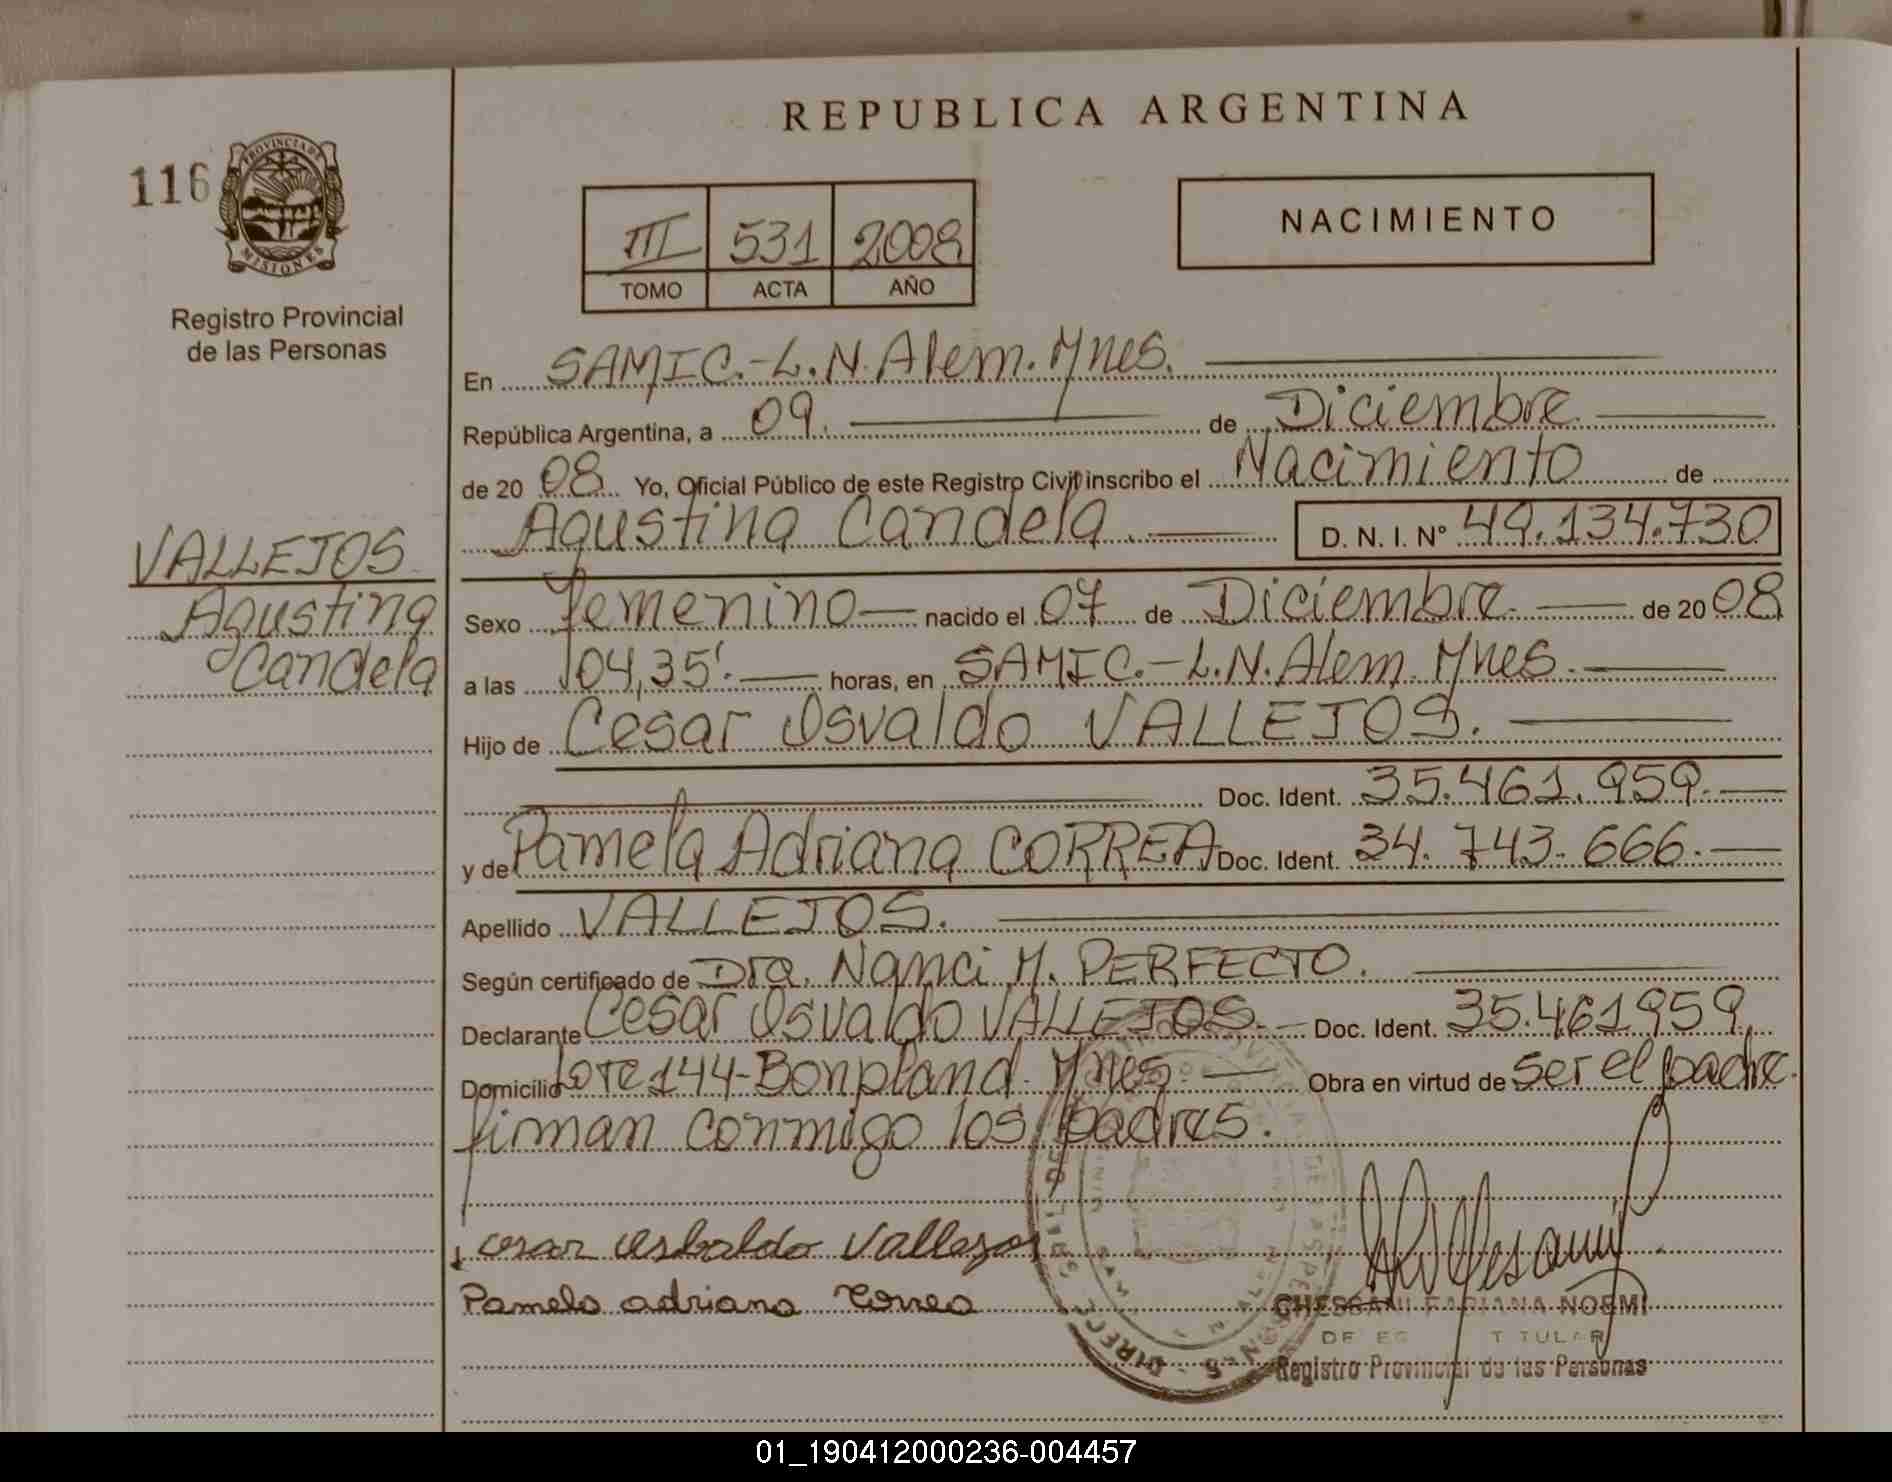 REPUBLICA ARGENTINA
116
PROVINCIA DE
MISIONES
Registro Provincial
de las Personas
III 531 2008
TOMO ACTA AÑO
NACIMIENTO
En SAMIC.-L.N.Alem.Mnes.
República Argentina, a 09. de Diciembre
de 20 08 Yo, Oficial Público de este Registro Civil inscribo el Nacimiento de
Agustina Candela. D. N. I. Nº 49.134.730
VALLEJOS
Agustina
Candela
Sexo femenino nacido el 07 de Diciembre de 20 08
a las 04,35'. horas, en SAMIC.-L.N.Alem.Mnes.
Hijo de Cesar Osvaldo VALLEJOS.
Doc. Ident. 35.461.959.
y de Pamela Adriana CORREA Doc. Ident. 34.743.666.
Apellido VALLEJOS.
Según certificado de Dra. Nanci M. PERFECTO.
Declarante Cesar Osvaldo VALLEJOS. Doc. Ident. 35.461959
Domicilio Lote 144-Bonpland. Mnes Obra en virtud de ser el padre.
firman conmigo los padres.
cesar osbaldo Vallejos
Pamela adriana Correa
CHESSANI FABIANA NOEMI
TITULAR
Registro Provincial de las Personas
01_190412000236-004457